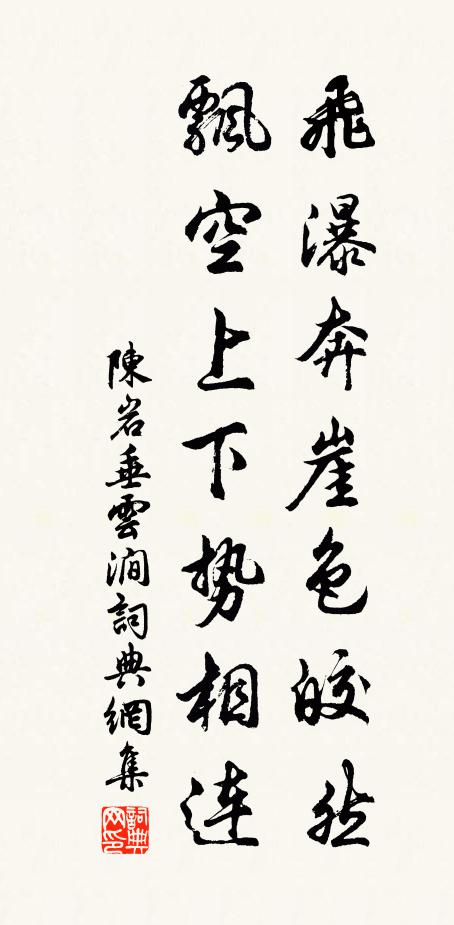 飛瀑奔崖色皎然
飄空上下势相連
陳岩垂雲澗詞典網集
詞典网印